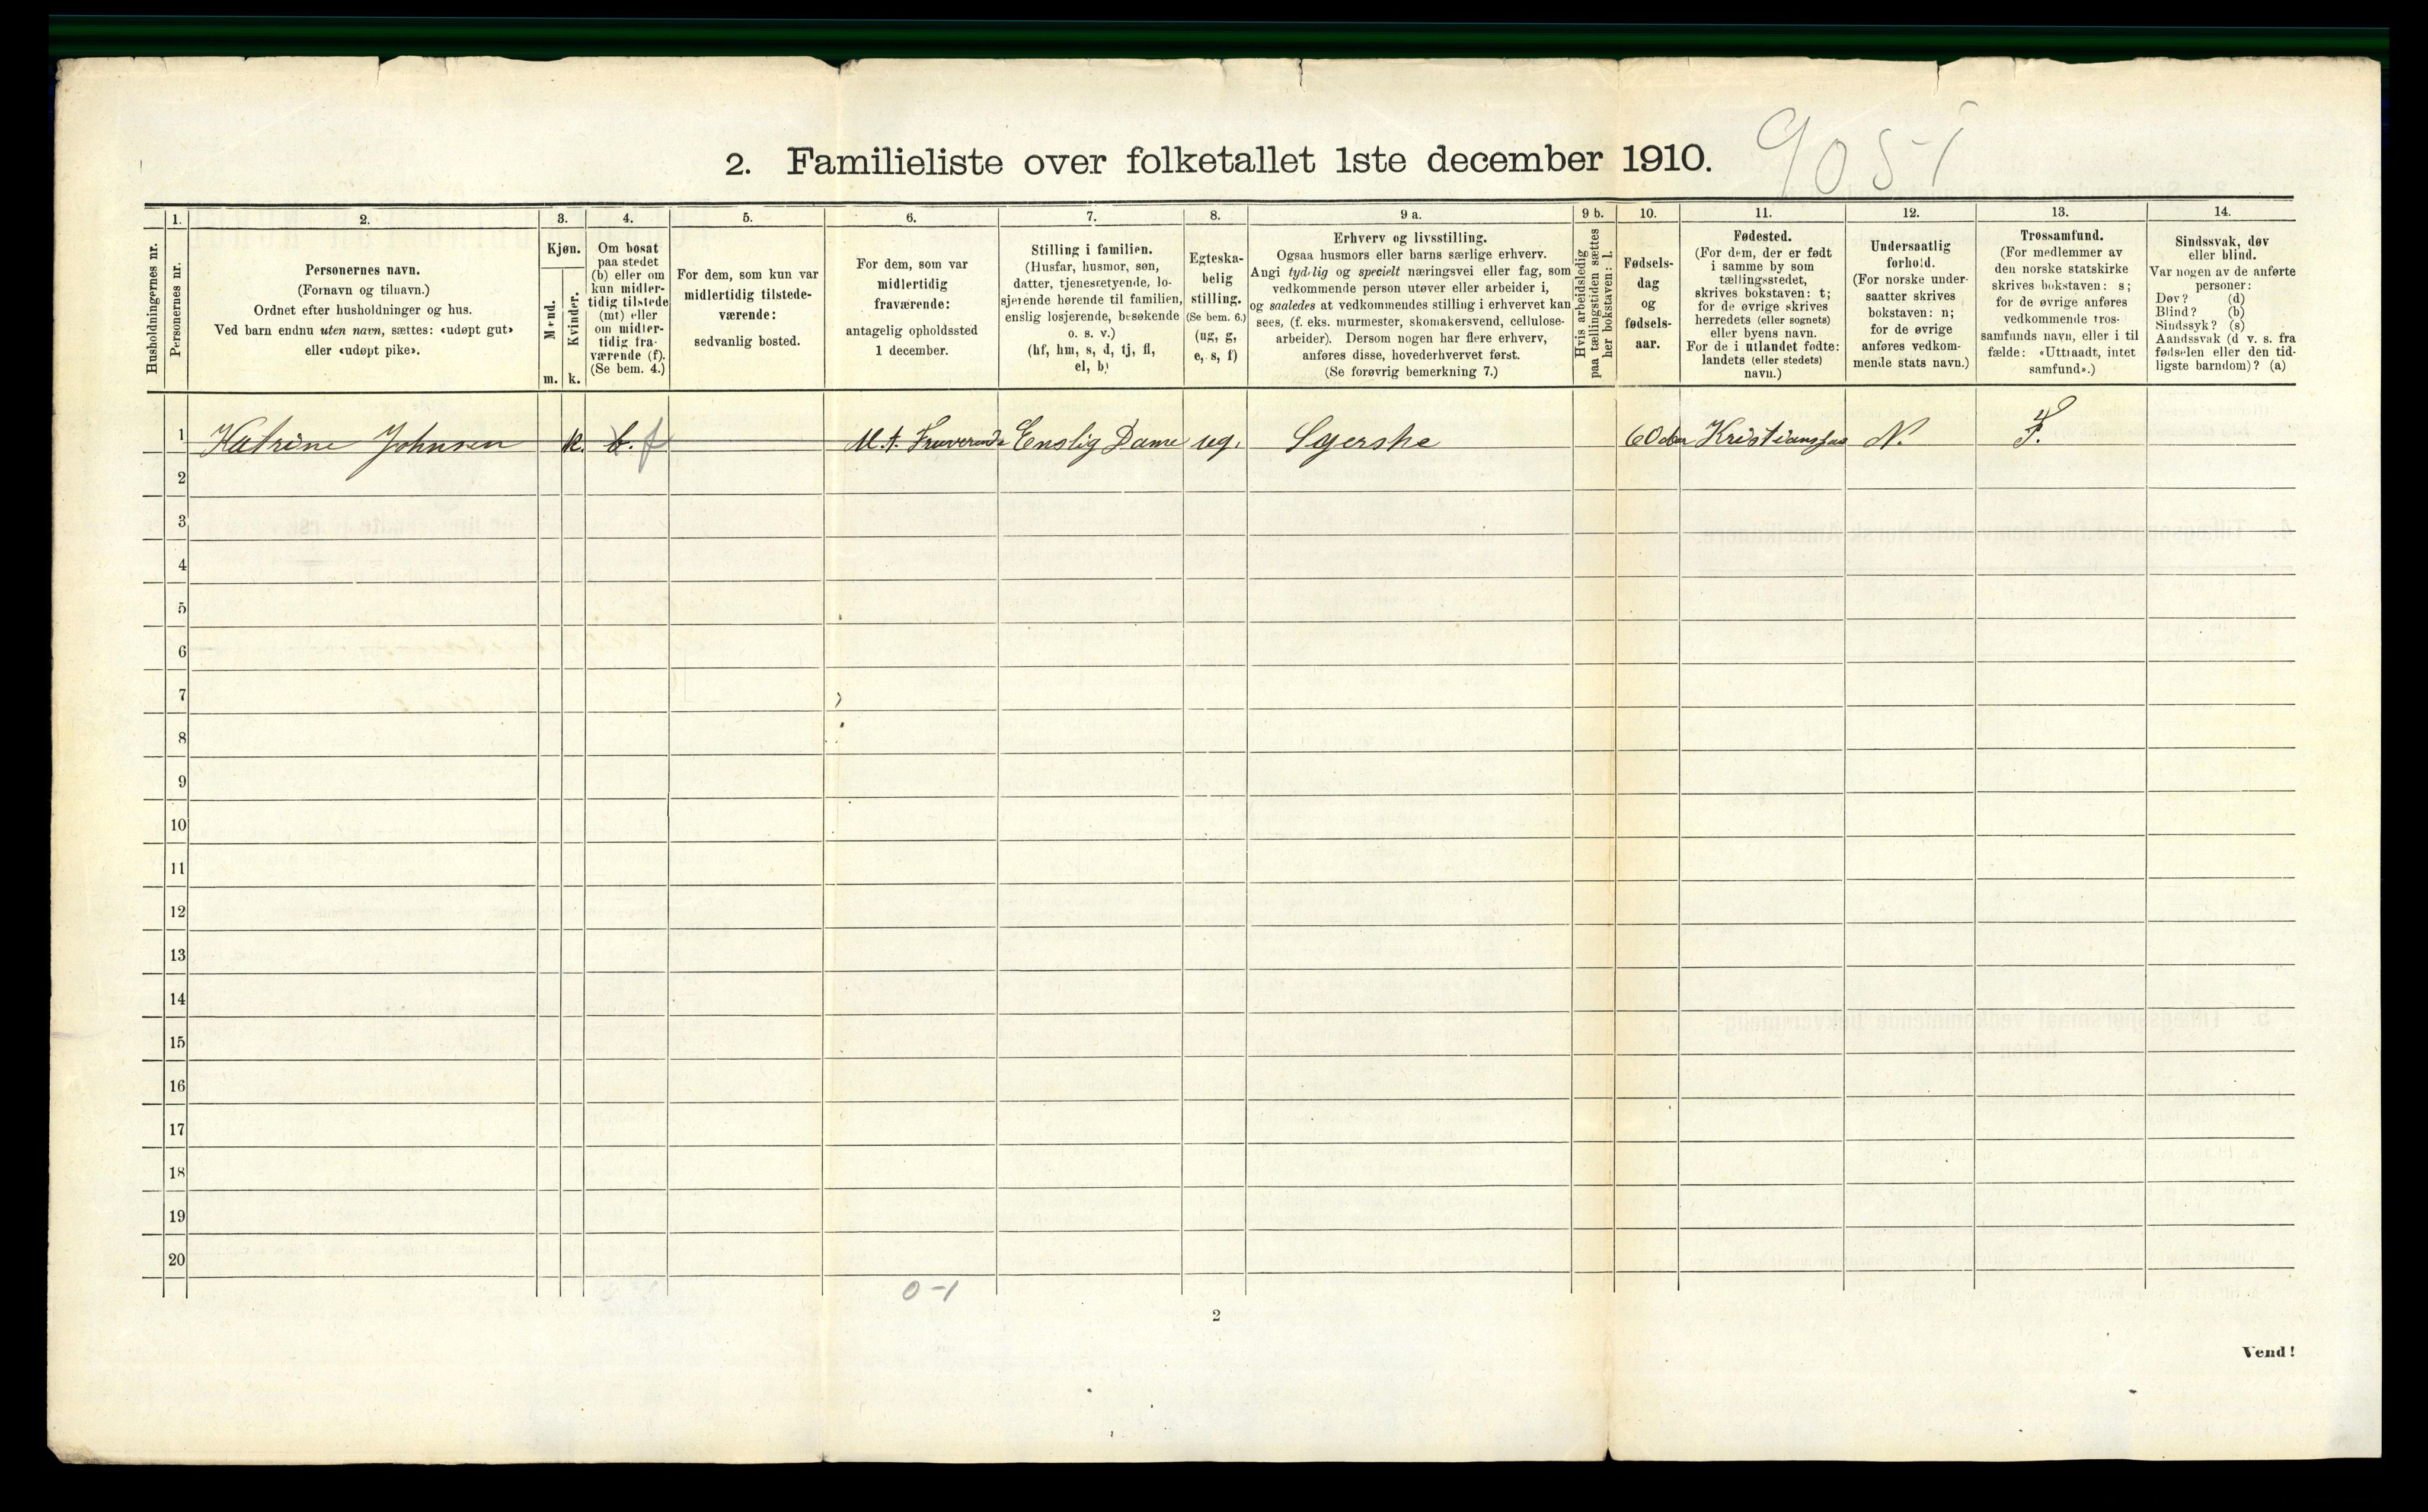 2. Familieliste over folketallet 1ste december 1910.
905-1
Husholdningernes nr.
1.
Personernes nr.
2.
Personernes navn.
(Fornavn og tilnavn.)
Ordnet efter husholdninger og hus.
Ved barn endnu uten navn, sættes: «udøpt gut»
eller «udøpt pike».
3.
Kjøn.
Mænd.
Kvinder.
m. k.
4.
Om bosat
paa stedet
(b) eller om
kun midler-
tidig tilstede
(mt) eller
om midler-
tidig fra-
værende (f).
(Se bem. 4.)
5.
For dem, som kun var
midlertidig tilstede-
værende:
sedvanlig bosted.
6.
For dem, som var
midlertidig
fraværende:
antagelig opholdssted
1 december.
7.
Stilling i familien.
(Husfar, husmor, søn,
datter, tjenestetyende, lo-
sjerende hørende til familien,
enslig losjerende, besøkende
o. s. v.)
(hf, hm, s, d, tj, fl,
el, b)
8.
Egteska-
belig
stilling.
(Se bem. 6.)
(ug, g,
e, s, f)
9 a.
Erhverv og livsstilling.
Ogsaa husmors eller barns særlige erhverv.
Angi tydelig og specielt næringsvei eller fag, som
vedkommende person utøver eller arbeider i,
og saaledes at vedkommendes stilling i erhvervet kan
sees, (f. eks. murmester, skomakersvend, cellulose-
arbeider). Dersom nogen har flere erhverv,
anføres disse, hovederhvervet først.
(Se forøvrig bemerkning 7.)
9 b.
Hvis arbeidsledig
paa tællingstiden sættes
her bokstaven: l.
10.
Fødsels-
dag
og
fødsels-
aar.
11.
Fødested.
(For dem, der er født
i samme by som
tællingsstedet,
skrives bokstaven: t;
for de øvrige skrives
herredets (eller sognets)
eller byens navn.
For de i utlandet fødte:
landets (eller stedets)
navn.)
12.
Undersaatlig
forhold.
(For norske under-
saatter skrives
bokstaven: n;
for de øvrige
anføres vedkom-
mende stats navn.)
13.
Trossamfund.
(For medlemmer av
den norske statskirke
skrives bokstaven: s;
for de øvrige anføres
vedkommende tros-
samfunds navn, eller i til
fælde: «Uttraadt, intet
samfund».)
14.
Sindssvak, døv
eller blind.
Var nogen av de anførte
personer:
Døv? (d)
Blind? (b)
Sindssyk? (s)
Aandssvak (d v. s. fra
fødselen eller den tid-
ligste barndom)? (a)
1 Katrine Johnsen k. b. f Enslig Dame ug. Syerske N.
2
3
4
5
6
7
8
9
10
11
12
13
14
15
16
17
18
19
20
0-1
2
Vend!